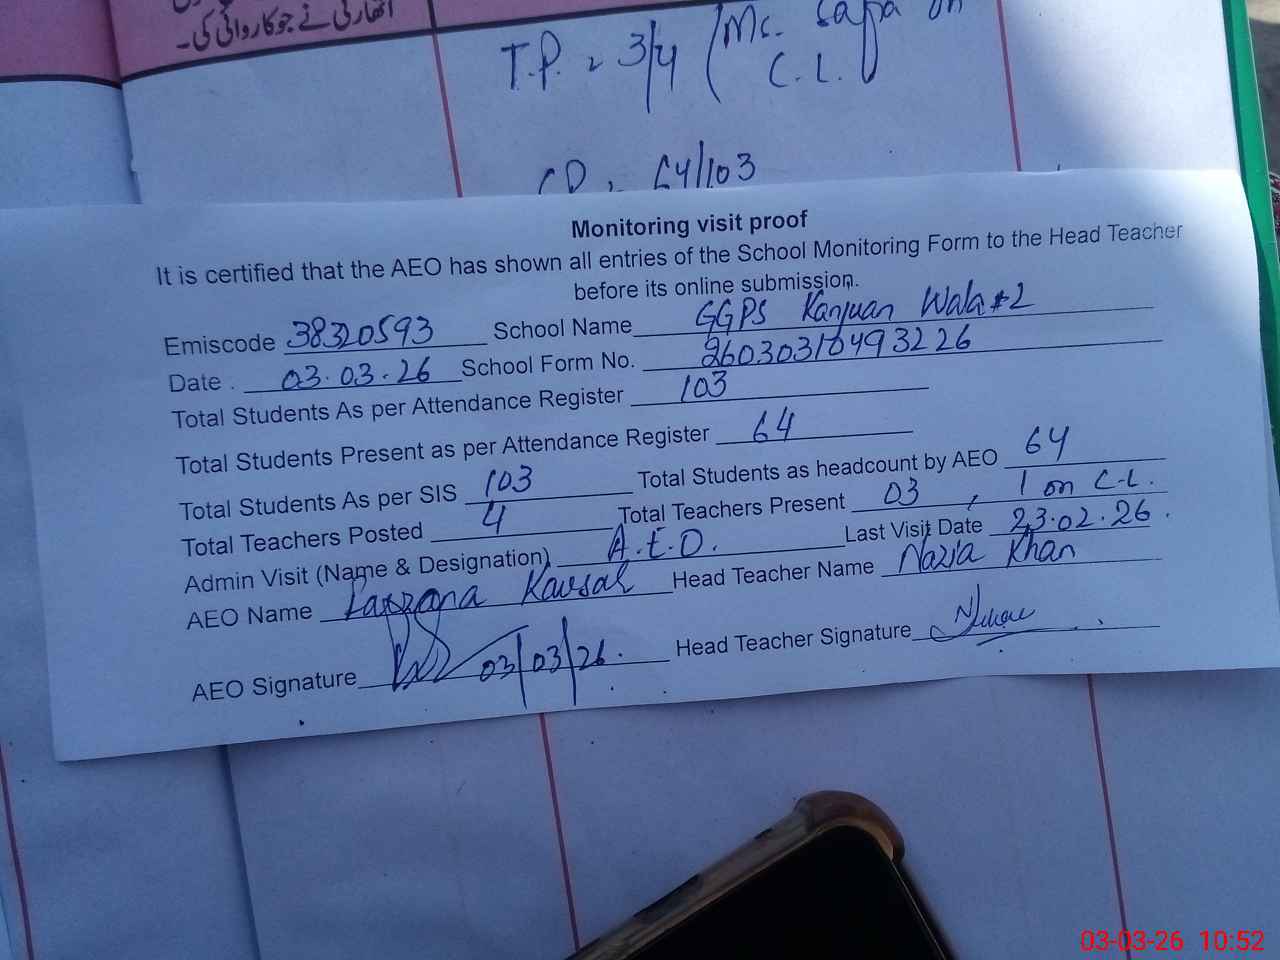 اتھارٹی نے جو کاروائی کی۔
T.P. = 3/4 (Ms. Safa on
C.L.
CP = 64/103
Monitoring visit proof
It is certified that the AEO has shown all entries of the School Monitoring Form to the Head Teacher
before its online submission.
Emiscode 38320593 School Name GGPS Kanjuan Wala #2
Date . 03.03.26 School Form No. 26030310493226
Total Students As per Attendance Register 103
Total Students Present as per Attendance Register 64
Total Students As per SIS 103 Total Students as headcount by AEO 64
Total Teachers Posted 4 Total Teachers Present 03 , 1 on C.L.
Admin Visit (Name & Designation) A.E.O. Last Visit Date 23.02.26.
AEO Name Farzana Kausar Head Teacher Name Nazia Khan
AEO Signature 03/03/26. Head Teacher Signature
03-03-26 10:52